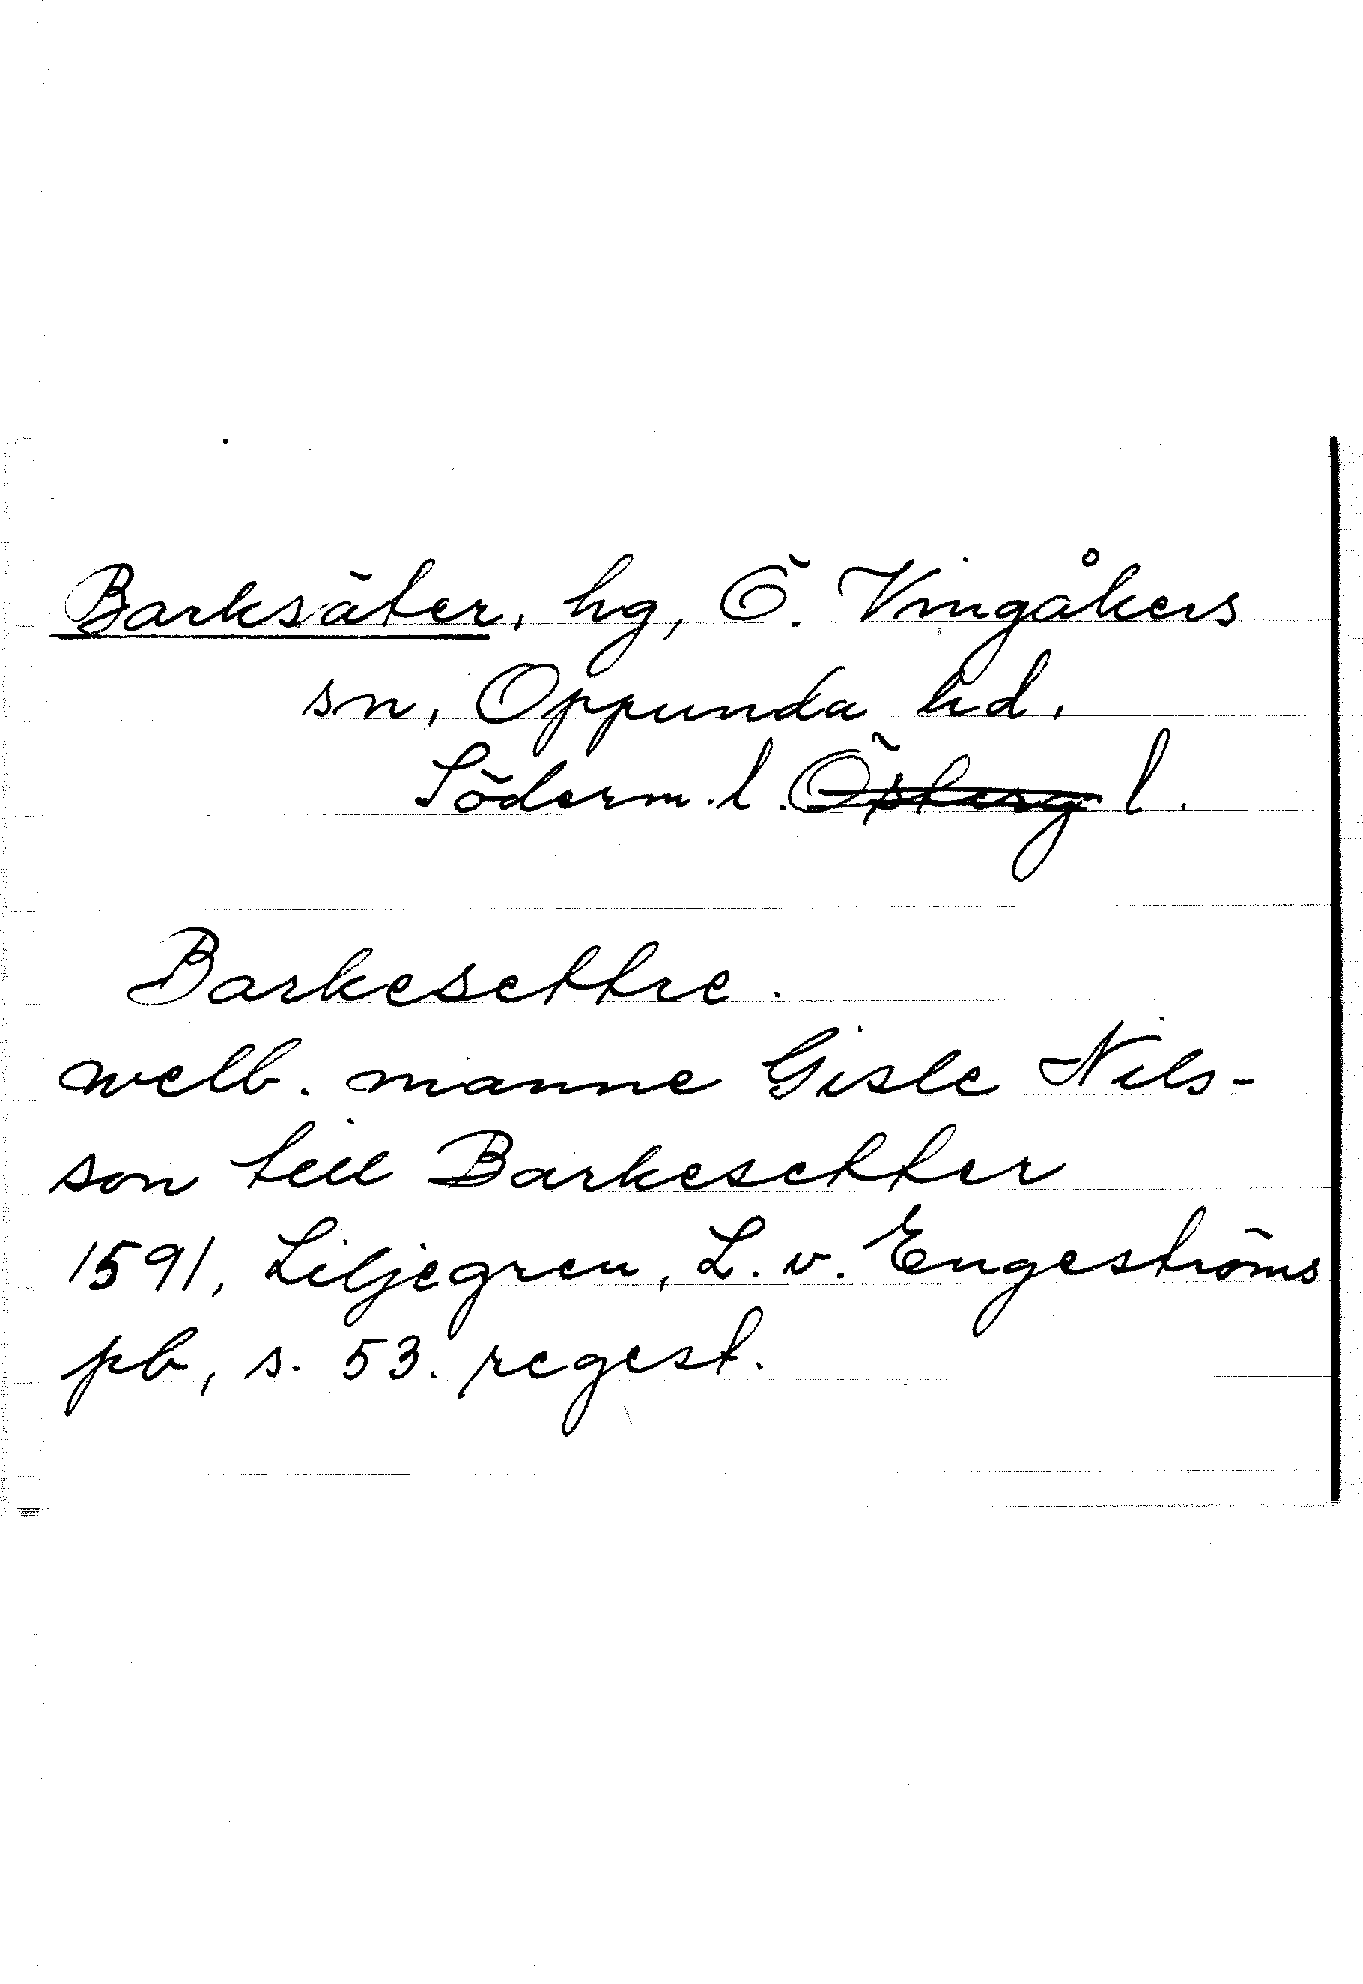 Barksäter, hg, Ö. Vingåkers
sn, Oppunda hd,
Söderm. l. Österg l.
Barkesettre.
welb. manne Gisle Nils-
son till Barkesetter
1591, Liljegren, L. v. Engeströms
pb, s. 53. regest.